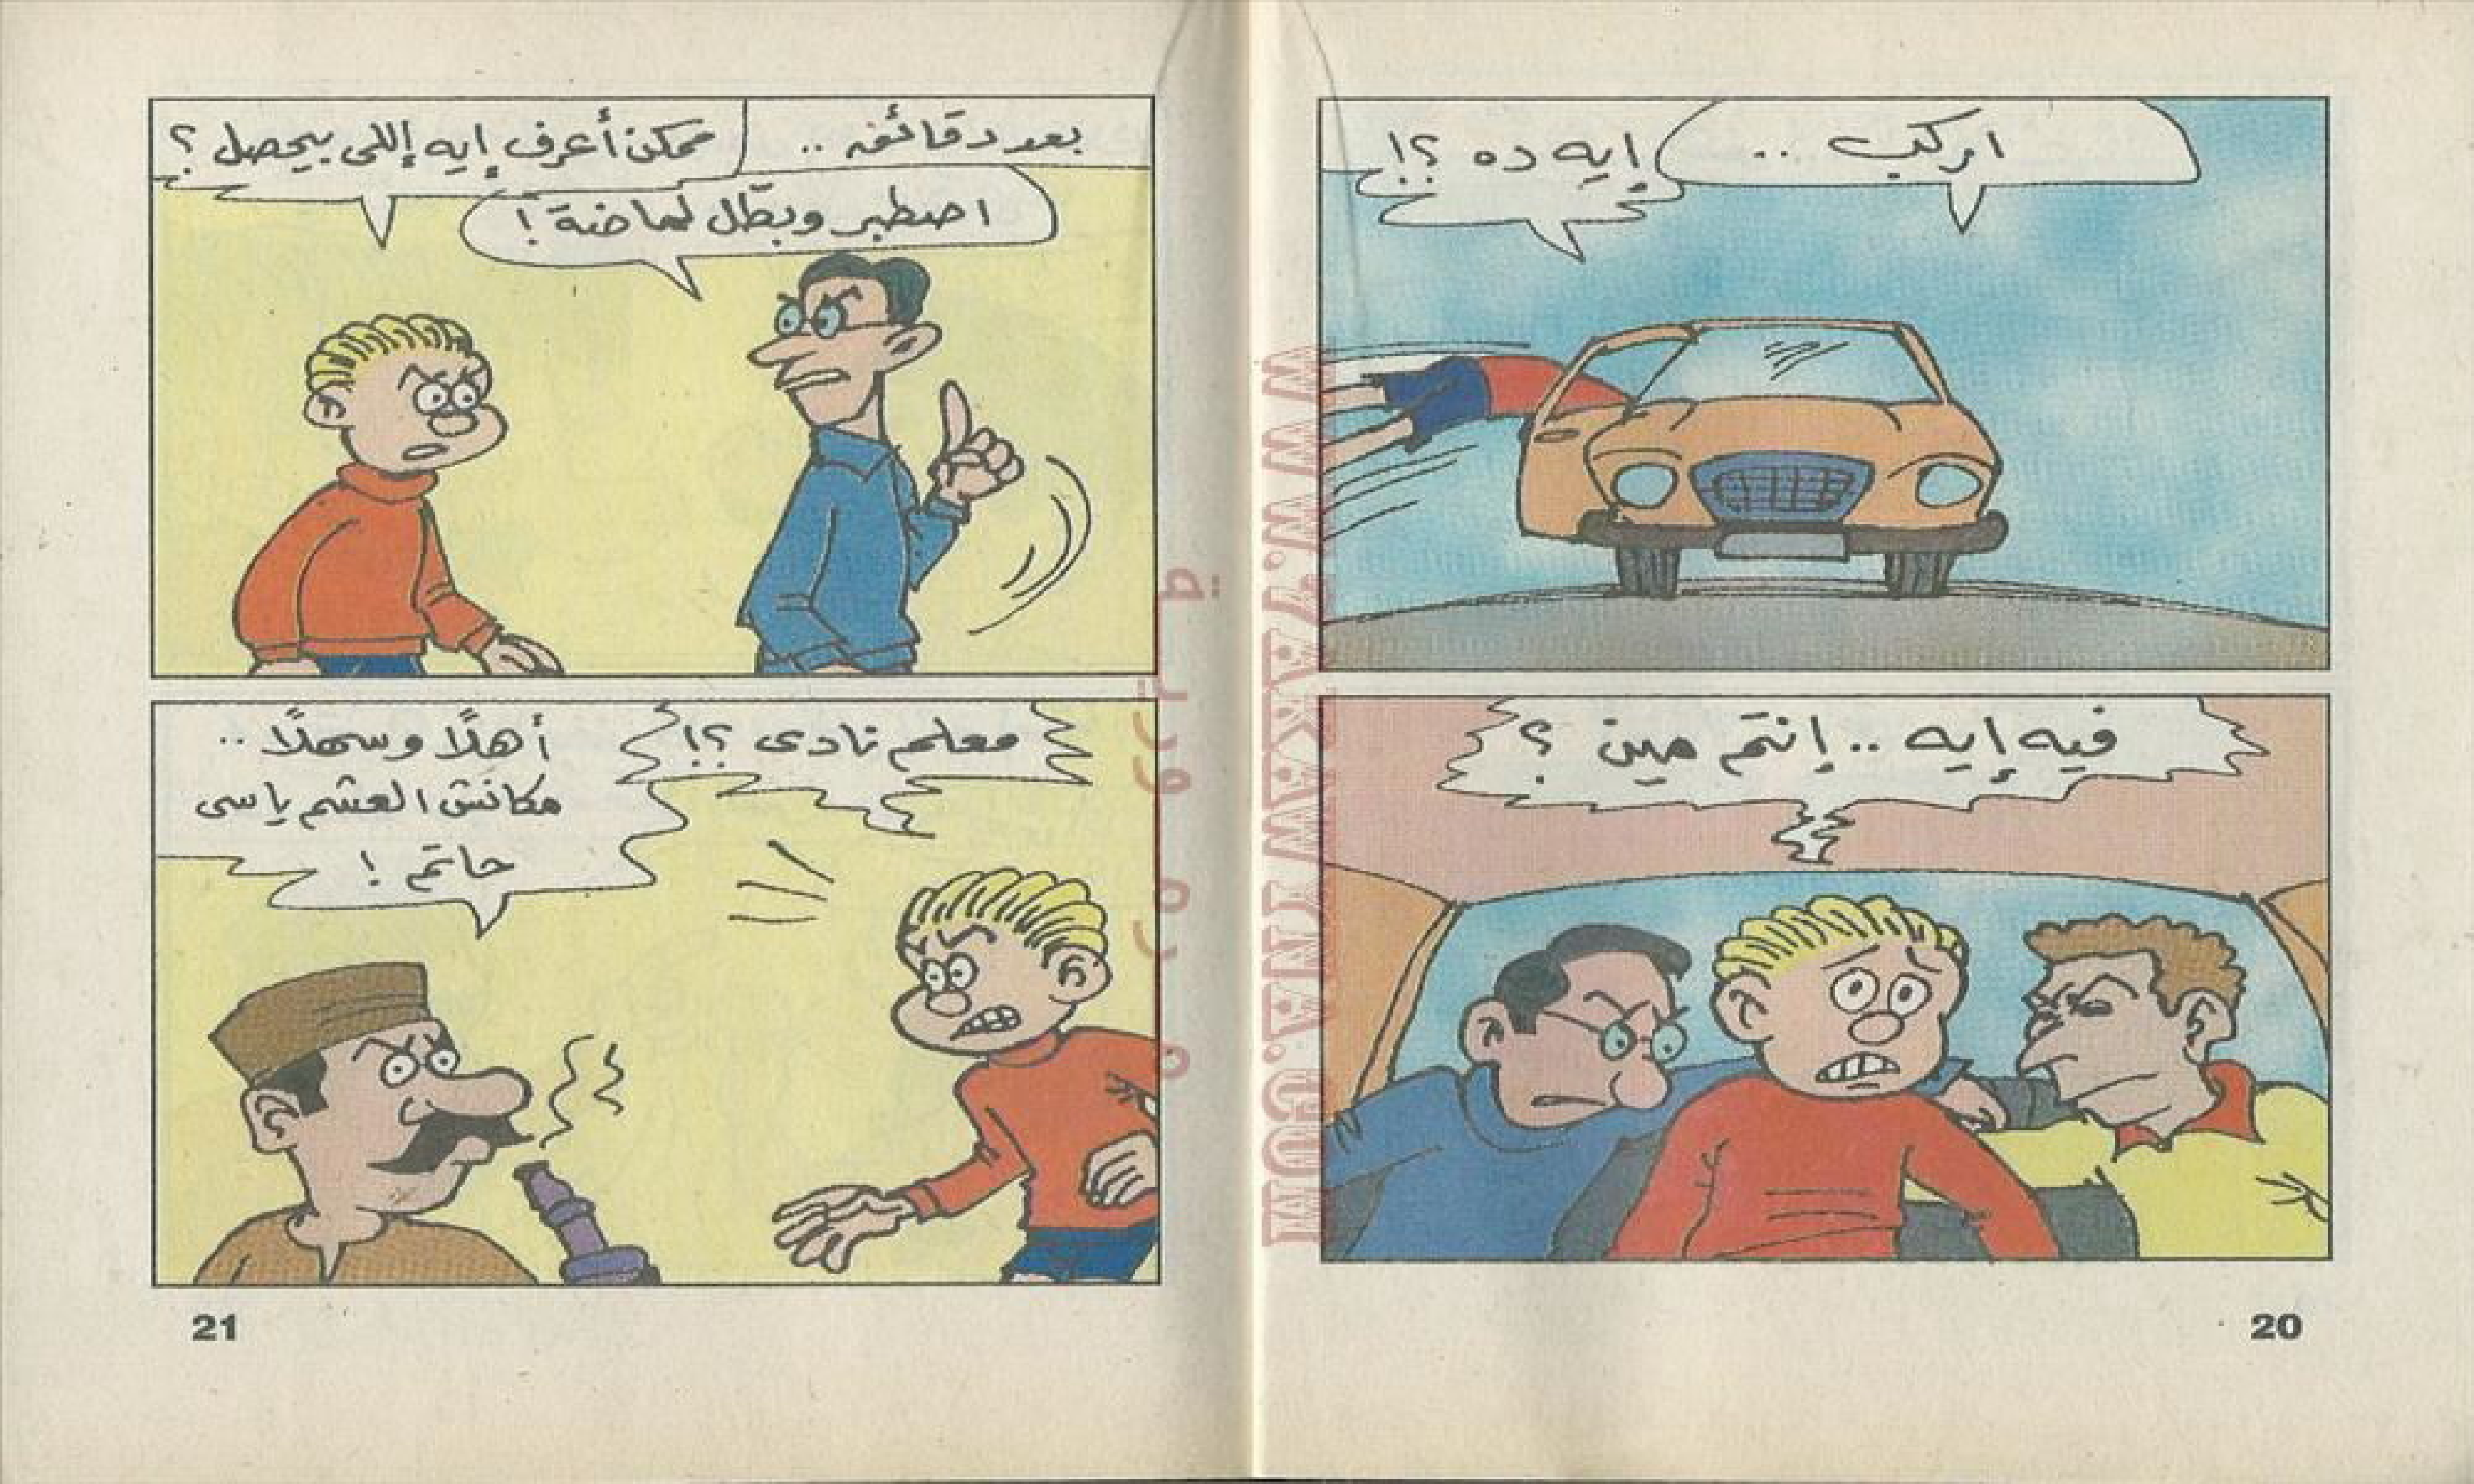 اركب ..
إيه ده ؟!
فيه إيه .. إنتم مين ؟
20
بعد دقائق ..
ممكن أعرف إيه إللى بيحصل ؟
اصطبر وبطّل لماضة !
معلم نادى ؟!
أهلًا وسهلًا ..
مكانش العشم ياسى
حاتم !
21